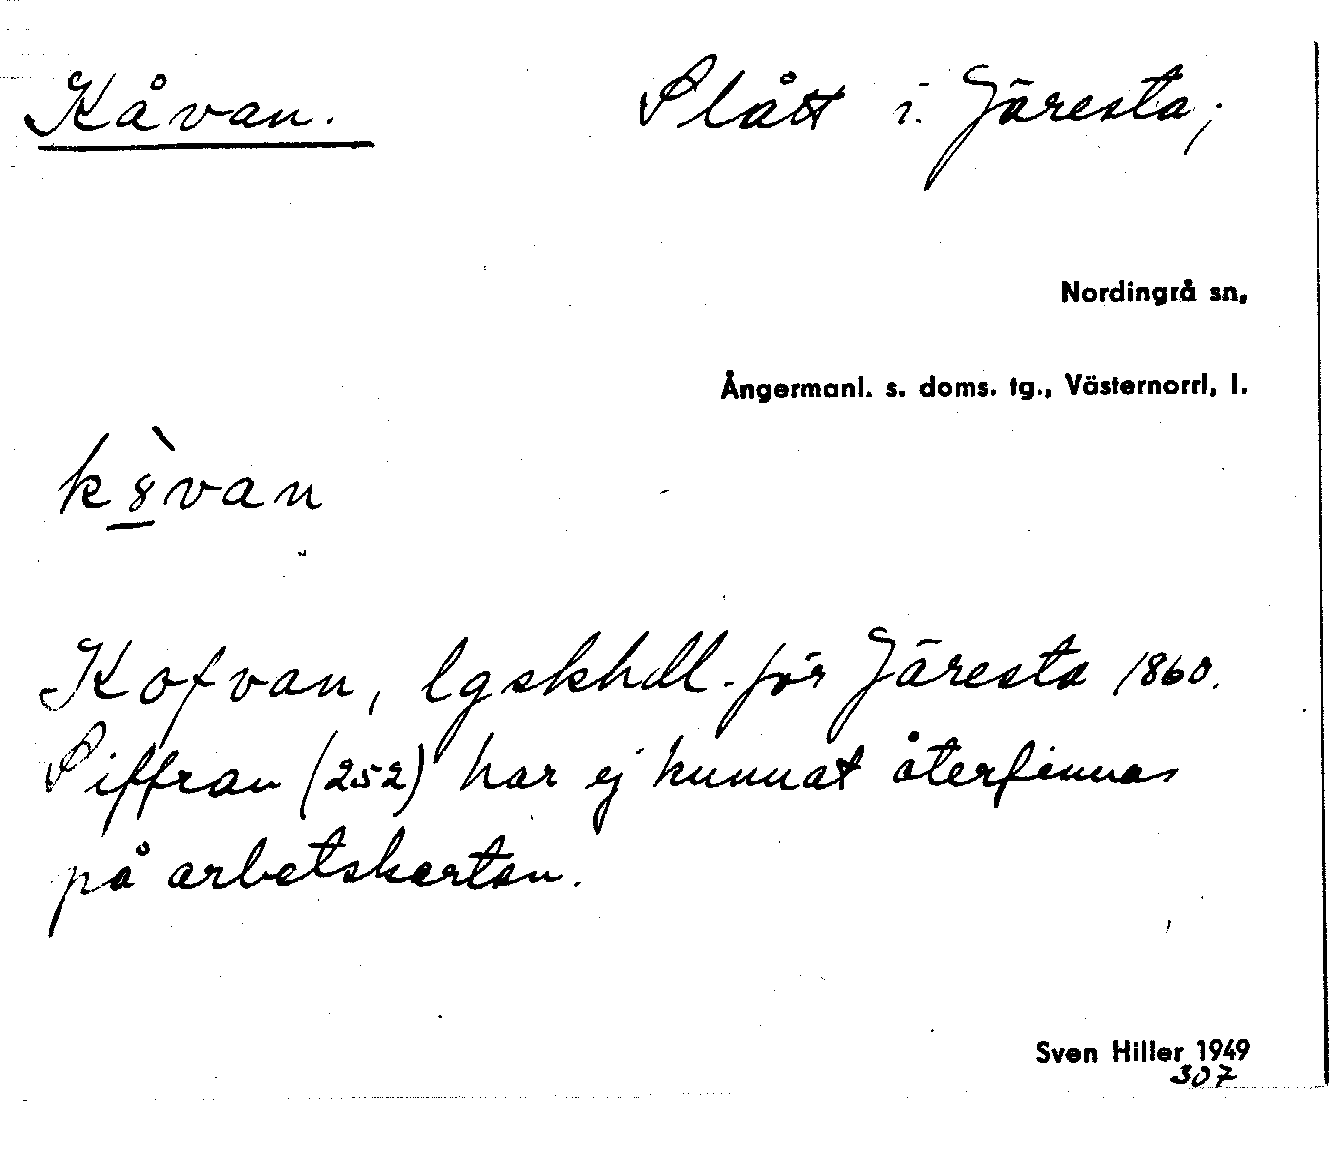 Kåvan. Slått i Järesta;
Nordingrå sn,
Ångermanl. s. doms. tg., Västernorrl, l.
k8̱̀van
Kofvan, lgskhdl. för Järesta 1860.
Siffran (252) har ej kunnat återfinnas
på arbetskartan.
Sven Hiller 1949
307